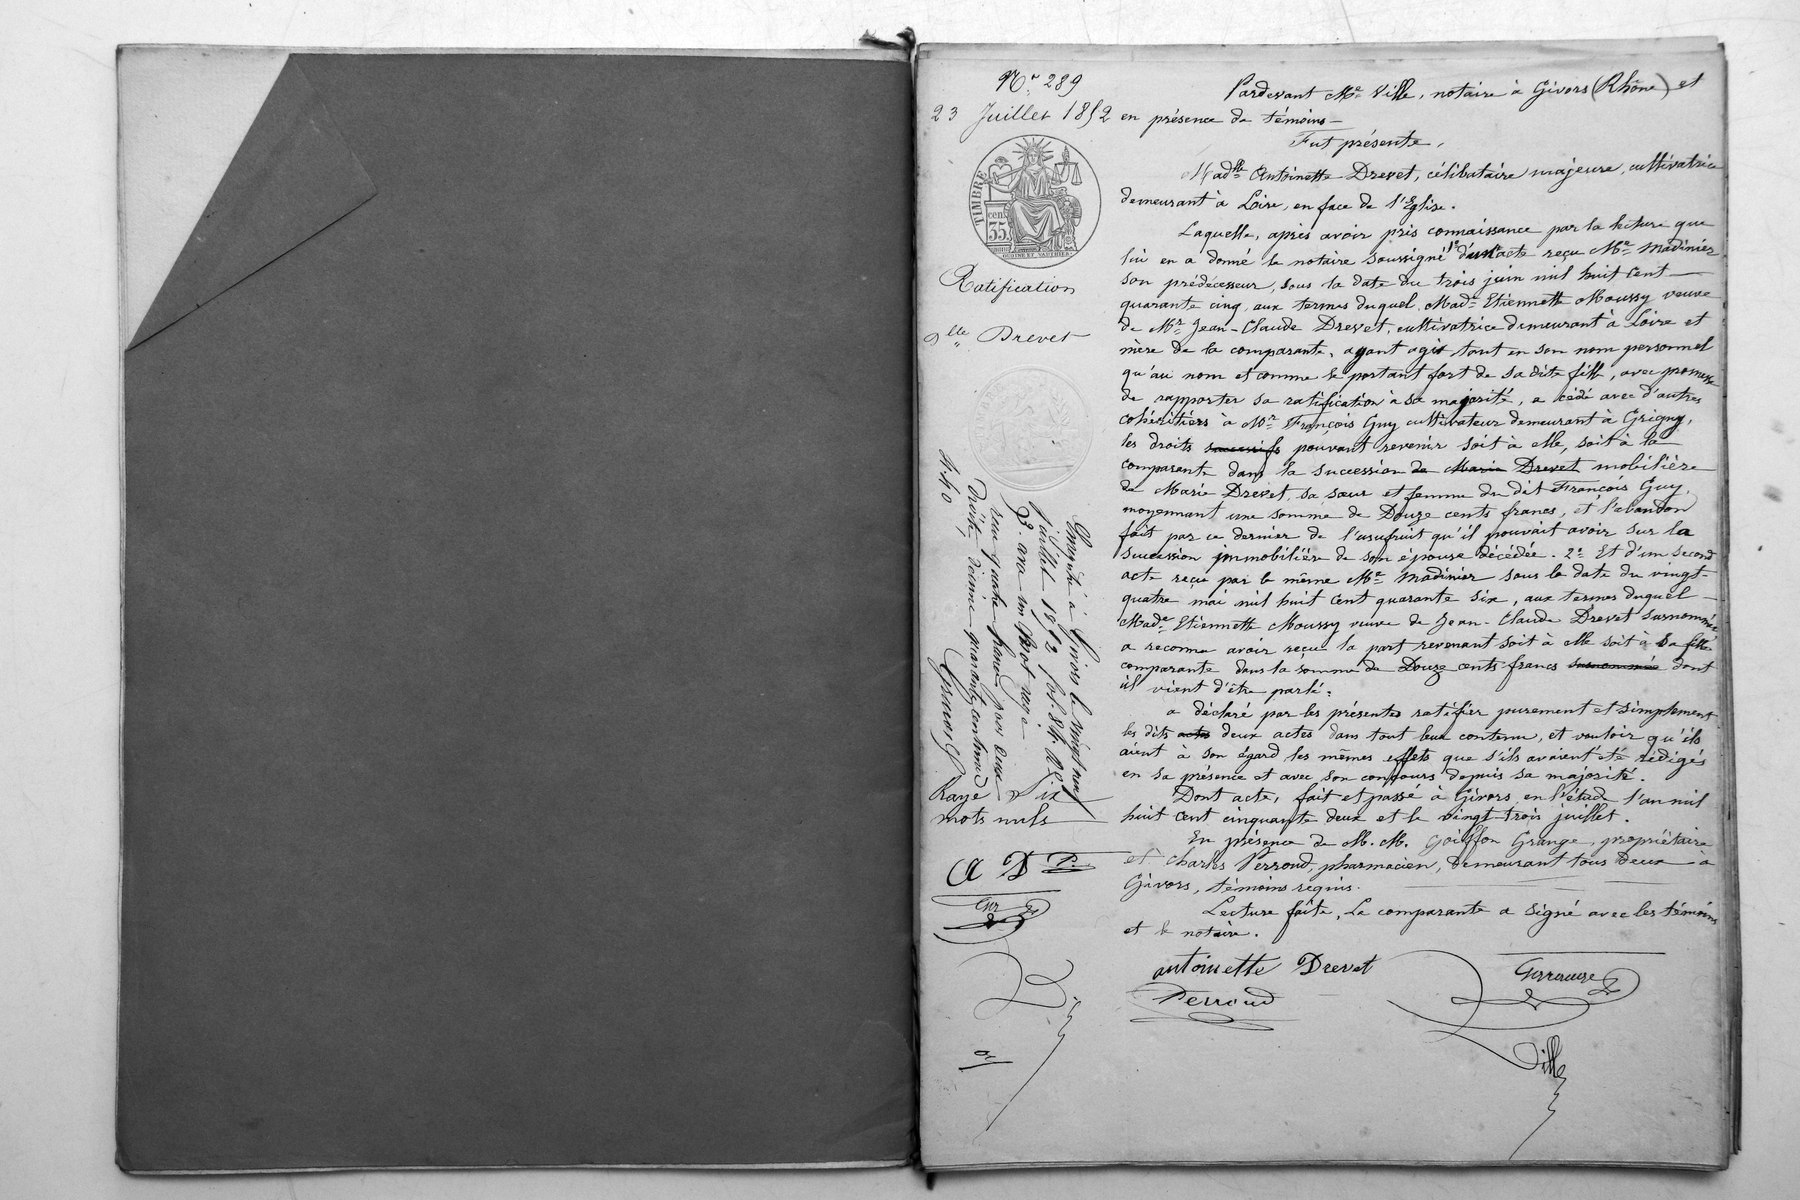 N° 289
23 Juillet 1852
TIMBRE
cen.
35
OUDINÉ ET VAUTHIER
Ratification
Dlle Drevet
Pardevant Me Ville, notaire à Givors (Rhône) et
en présence de témoins —
Fut présente,
Madlle Antoinette Drevet, célibataire majeure, cultivatrice
demeurant à Loire, en face de l'Eglise.
Laquelle, après avoir pris connaissance par la lecture que
lui en a donné le notaire soussigné 1° d'un acte reçu Me Madinier
son prédécesseur, sous la date du trois juin mil huit cent —
quarante cinq, aux termes duquel, Made Etiennette Moussy veuve
de Mr Jean-Claude Drevet, cultivatrice demeurant à Loire et
mère de la comparante, ayant agit tant en son nom personnel
qu'au nom et comme se portant fort de sa dite fille, avec promesse
de rapporter sa ratification à sa majorité, a cédé avec d'autres
cohéritiers à Mr François Guy cultivateur demeurant à Grigny,
les droits successifs pouvant revenir soit à elle, soit à la
comparante dans la succession de Marie Drevet mobilière
de Marie Drevet, sa sœur et femme du dit François Guy,
moyennant une somme de Douze cents francs, et l'abandon
fait par ce dernier de l'usufruit qu'il pouvait avoir sur la
succession immobilière de son épouse décédée. 2° Et d'un second
acte reçu par le même Me Madinier sous la date du vingt-
quatre mai mil huit cent quarante six, aux termes duquel —
Made Etiennette Moussy veuve de Jean-Claude Drevet surnommée
a reconnu avoir reçu la part revenant soit à elle soit à sa fille
comparante dans la somme de Douze cents francs susnommée dont
il vient d'être parlé.
a déclaré par les présentes ratifier purement et simplement
les dits actes deux actes dans tout leur contenu, et vouloir qu'ils
aient à son égard les mêmes effets que s'ils avaient été rédigés
en sa présence et avec son concours depuis sa majorité.
Dont acte, fait et passé à Givors en l'étude l'an mil
huit cent cinquante deux et le vingt-trois juillet.
En présence de M. M. Goiffon Grange, propriétaire
et Charles Perroud, pharmacien, demeurant tous deux à
Givors, témoins requis.
Lecture faite, la comparante a signé avec les témoins
et le notaire.
antoinette Drevet
Perroud
Ville
Enregistré à Givors le vingt neuf
juillet 1852 fol. 84. Ve
3. avec un mot rayé.
reçu quatre francs pour deux
droits, dixième quarante centimes
4.40
Rayé Six
mots nuls
A D P.